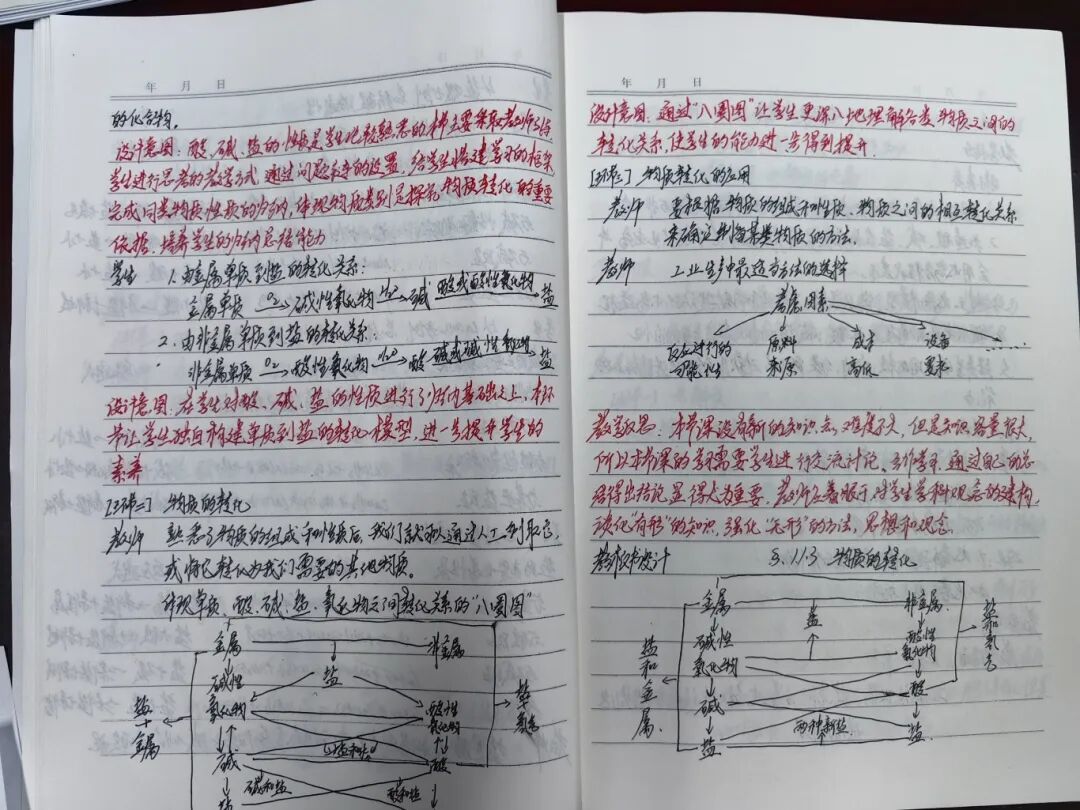 年 月 日
的化合物。
设计意图：酸、碱、盐的性质是学生比较熟悉的 主要采取教师引导
学生进行思考的教学方式，通过问题 的设置，给学生搭建学习的框架
完成同类物质性质的归纳，体现物质类别是探究物质转化的重要
依据，培养学生的归纳总结能力
学生 1. 由金属单质到盐的转化关系：
金属单质 O₂→ 碱性氧化物 H₂O→ 碱 酸或酸性氧化物→ 盐
2. 由非金属单质到盐的转化关系：
非金属单质 O₂→ 酸性氧化物 H₂O→ 酸 碱或碱性氧化物→ 盐
设计意图：在学生对酸、碱、盐的性质进行了归纳基础之上，本环
节让学生独自构建单质到盐的转化模型，进一步提升学生的
素养
[环节二] 物质的转化
教师 熟悉了物质的组成和性质后，我们就可以通过人工 制取它，
或将它转化为我们需要的其他物质。
体现单质、酸、碱、盐、氧化物之间转化关系的“八圈图”
金属 非金属
盐
碱性
氧化物
酸性
氧化物
盐
+
金属
盐
+
氢气
碱 盐和水 酸
碱和盐 酸和盐
盐
年 月 日
设计意图：通过“八圈图”让学生更深入地理解各类物质之间的
转化关系，使学生的能力进一步得到提升。
[环节三] 物质转化的应用
教师 要根据物质的组成和性质、物质之间的相互转化关系
来确定制备某类物质的方法。
教师 工业生产中最适方法的选择
考虑因素
反应进行的 原料 成本 设备 ......
可能性 来源 高低 要求
教学反思：本节课没有新的知识点，难度不大，但是知识容量很大，
所以本节课的学习需要学生进行交流讨论、合作学习，通过自己的总
结得出结论显得尤为重要。教师应着眼于对学生学科观念的建构，
淡化“有形”的知识，强化“无形”的方法、思想和观念。
教学板书设计 §.11.3 物质的转化
金属 盐 非金属
碱性
氧化物
酸性
氧化物
盐
和
金
属
盐
和
氢
气
碱 酸
盐 两种新盐 盐